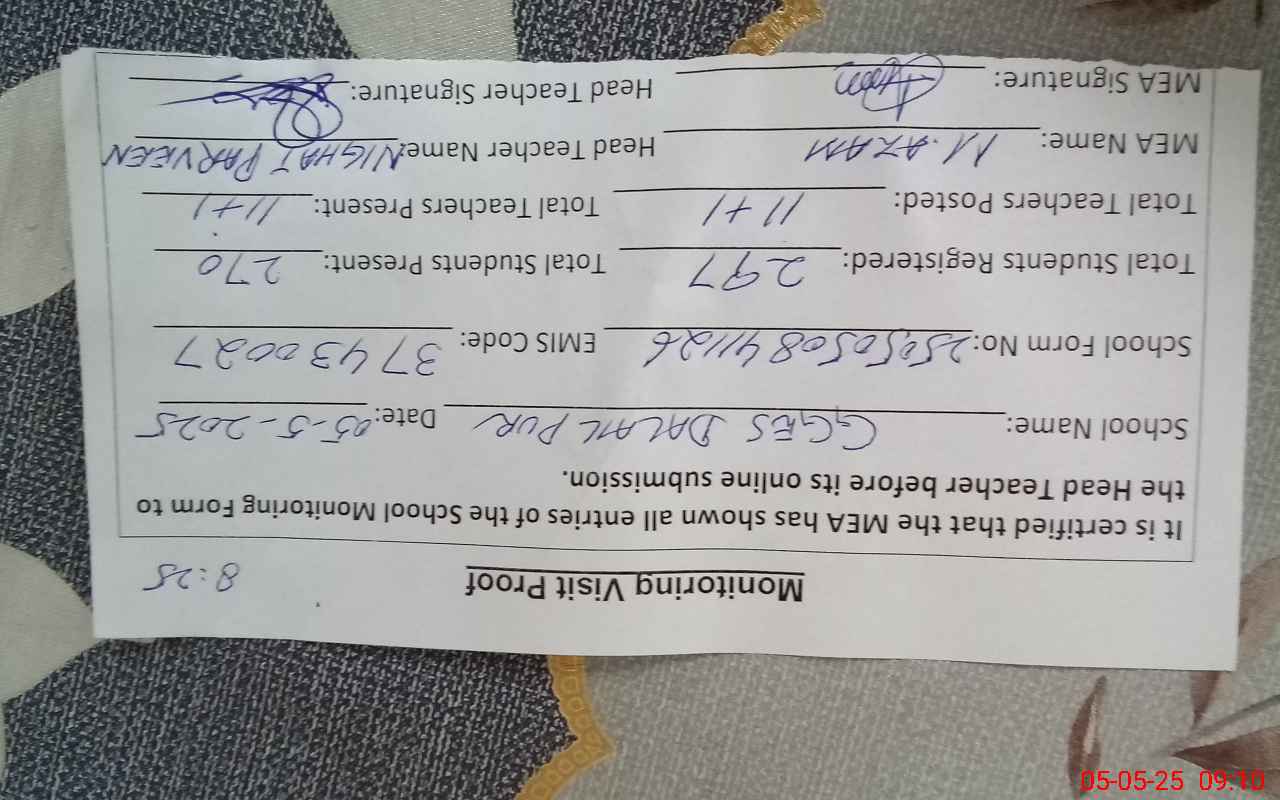 Monitoring Visit Proof 8:25
It is certified that the MEA has shown all entries of the School Monitoring Form to
the Head Teacher before its online submission.
School Name: GGES DALAIL PUR Date: 05-5-2025
School Form No: 250505084126 EMIS Code: 37430027
Total Students Registered: 297 Total Students Present: 270
Total Teachers Posted: 11+1 Total Teachers Present: 11+1
MEA Name: M.AZAM Head Teacher Name: NIGHAT PARVEEN
MEA Signature: Head Teacher Signature:
05-05-25 09:10